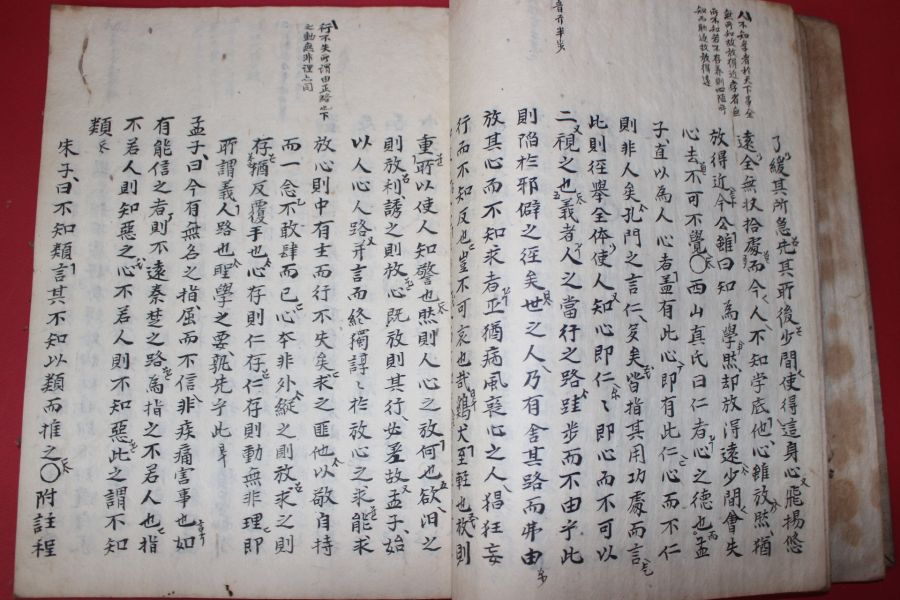 不知學者於天下事全
無所知故放得近學者自
知而騐近故放得遠
了緩其所急先其所後少間使得這身心飛揚悠
遠全無收拾處而今人不知学底他心雖放然猶
放得近今公雖曰知為學然却放得遠少間會失
心去不可不覺〇西山真氏曰仁者心之德也孟
子直以為人心者盖有此心即有此仁心而不仁
則非人矣孔門之言仁多矣皆指其用功處而言
此則徑舉全体使人知心即仁〻即心而不可以
二視之也義者人之當行之路跬步而不由乎此
則陷於邪僻之徑矣世之人乃有舍其路而弗由
放其心而不知求者正猶病風喪心之人猖狂妄
行而不知反也豈不可哀也哉鷄犬至輕也放則
行不失所謂由正路之下
之動無非理上同
重所以使人知警也然則人心之放何也欲汨之
則放利誘之則放心既放則其行必差故孟子始
以人心人路并言而終獨諄〻於放心之求能求
放心則中有主而行不失矣求之匪他以敬自持
而一念不敢肆而已心本非外縱之則放求之則
存猶反覆手也心存則仁存仁存則動無非理即
所謂義人路也聖學之要孰先乎此
孟子曰今有無名之指屈而不信非疾痛害事也如
有能信之者則不遠秦楚之路為指之不若人也指
不若人則知惡之心不若人則不知惡此之謂不知
類
朱子曰不知類言其不知以類而推之〇附註程